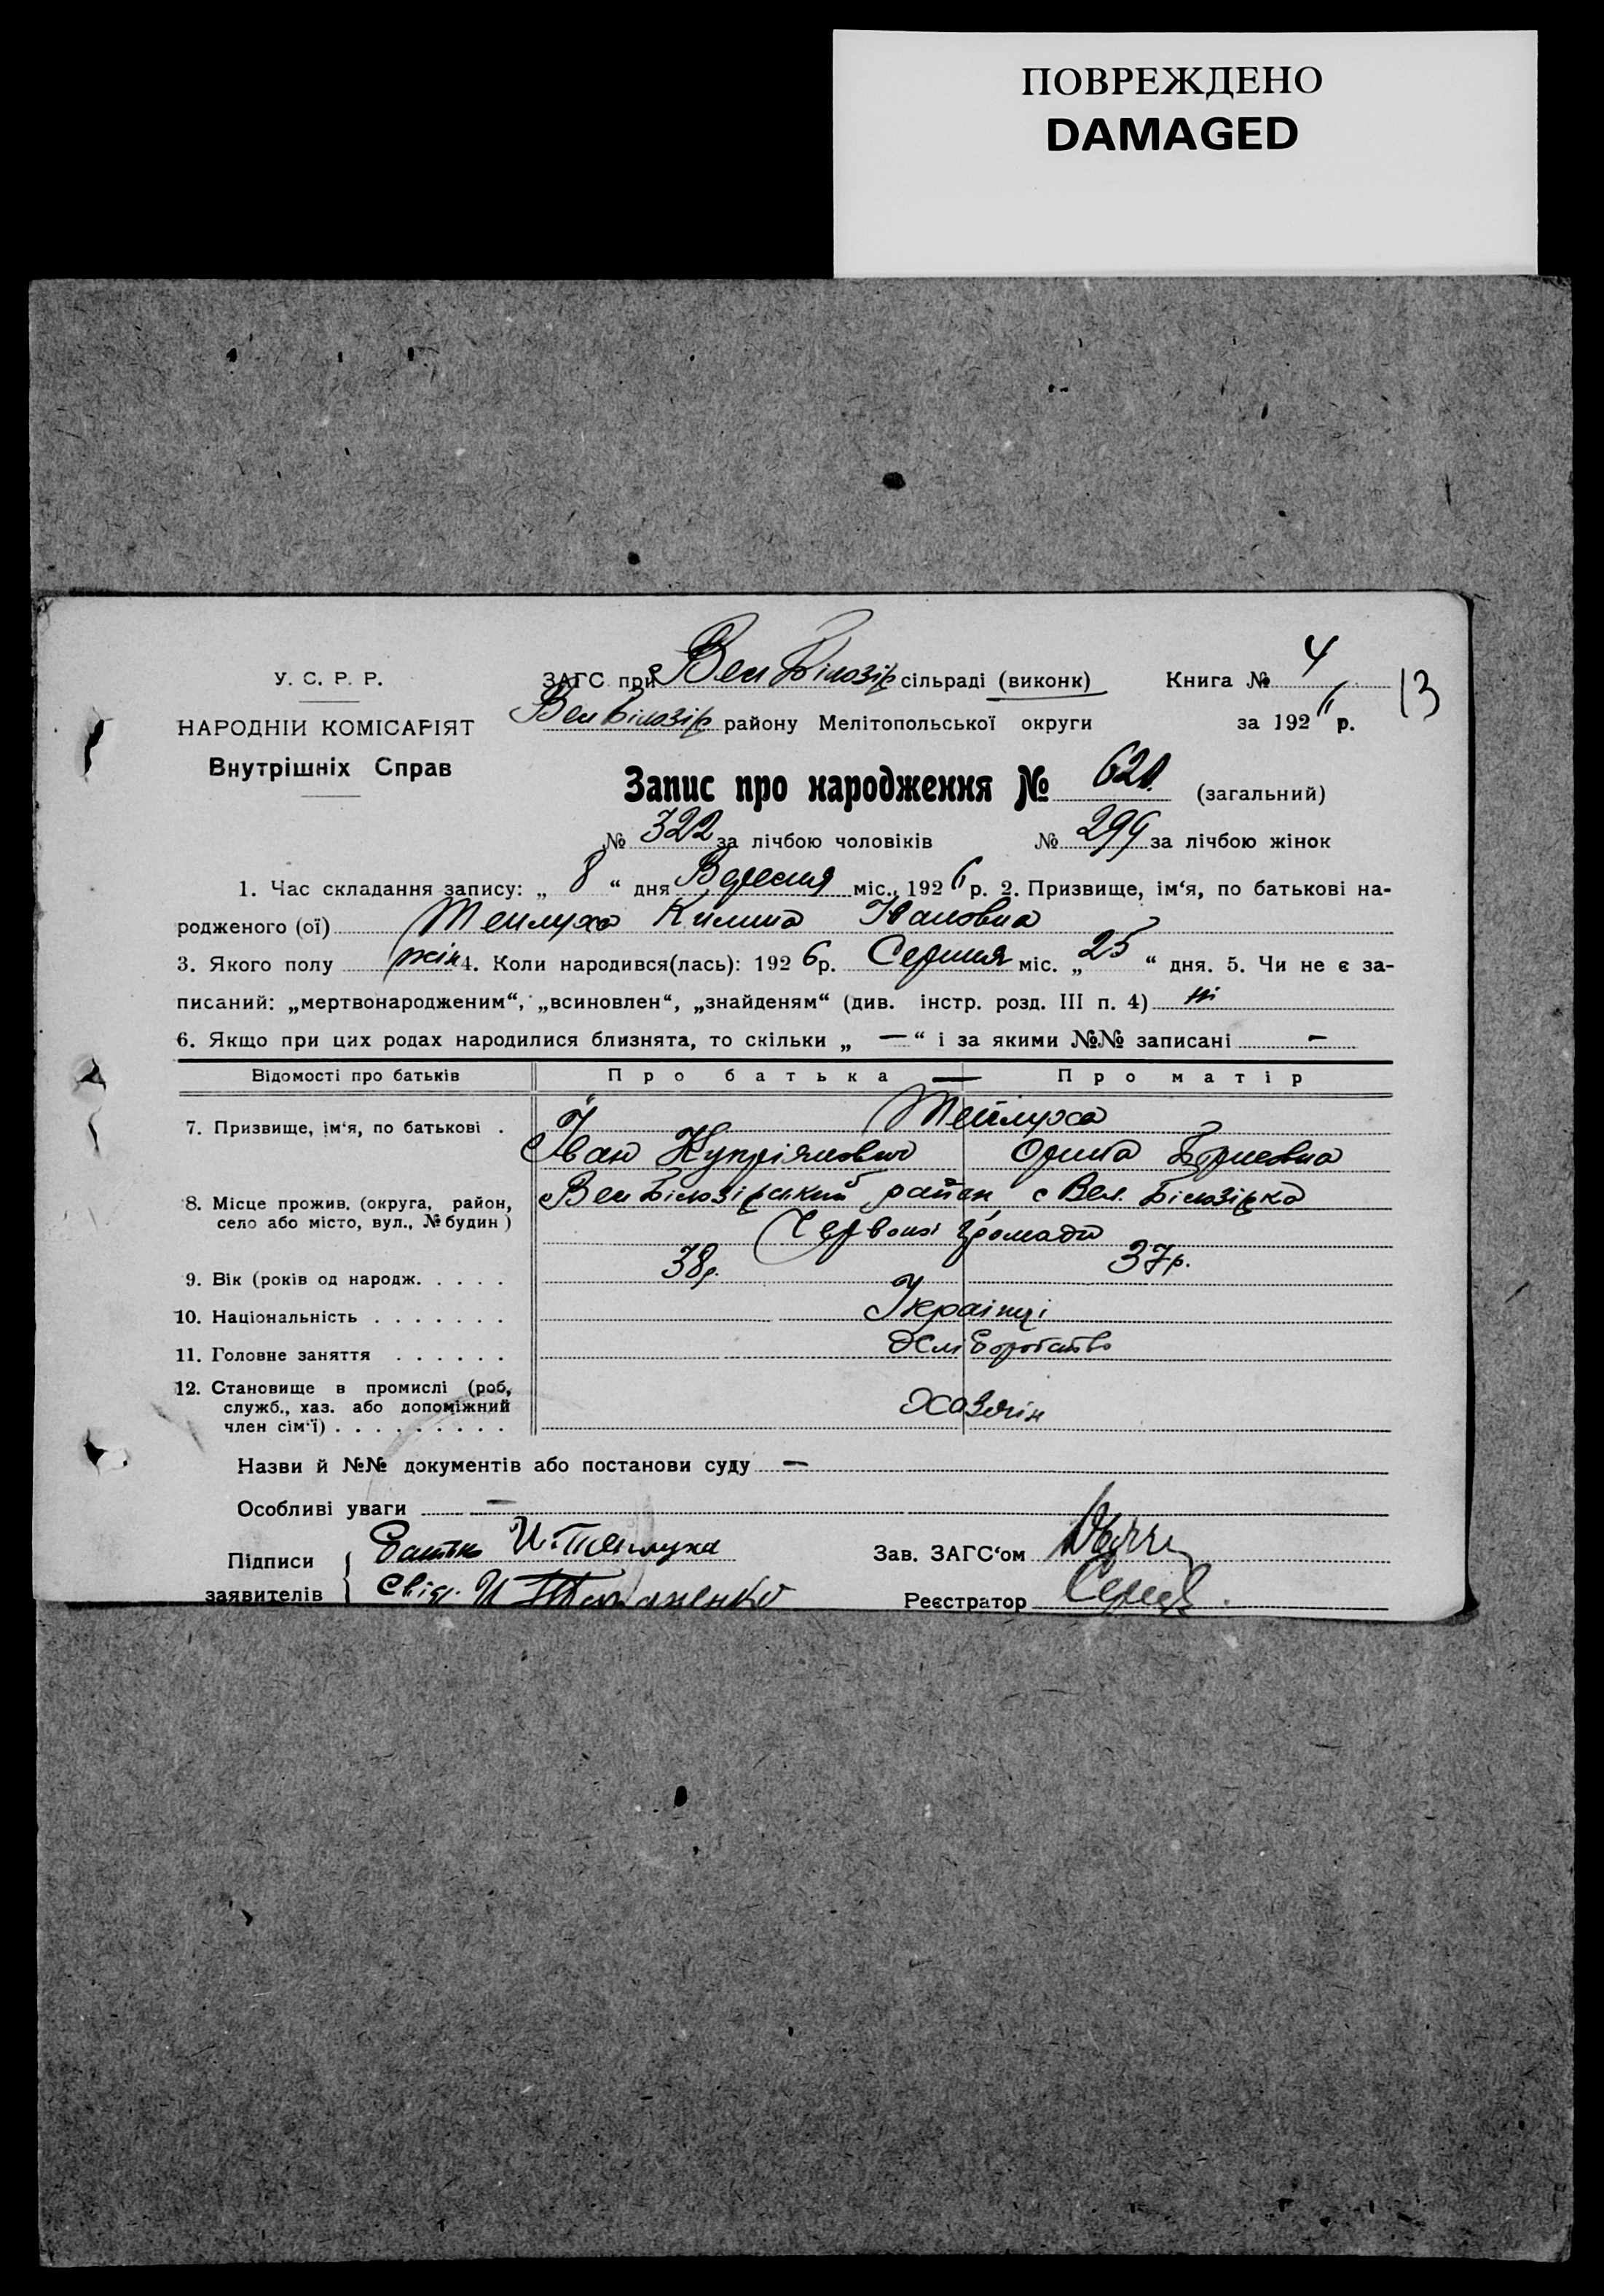 ПОВРЕЖДЕНО
DAMAGED
У. С. Р. Р.
НАРОДНІЙ КОМІСАРІЯТ
Внутрішніх Справ
ЗАГС при Вел Білозір сільраді (виконк)
Вел Білозір району Мелітопольської округи
Книга № 4
13
за 1926 р.
Запис про народження № 621 (загальний)
№ 322 за лічбою чоловіків № 299 за лічбою жінок
1. Час складання запису: „ 8 “ дня Вересня міс., 1926 р. 2. Призвище, ім‘я, по батькові на-
родженого (ої) Тейлуха Килина Івановна
3. Якого полу жін 4. Коли народився(лась): 1926 р. Серпня міс. „ 25 “ дня. 5. Чи не є за-
писаний: „мертвонародженим“, „всиновлен“, „знайденям“ (див. інстр. розд. III п. 4) ні
6. Якщо при цих родах народилися близнята, то скільки „ — “ і за якими №№ записані —
Відомості про батьків Про батька — Про матір
7. Призвище, ім‘я, по батькові . Тейлуха
Іван Купріянович Орина Борисовна
8. Місце прожив. (округа, район,
село або місто, вул., № будин) Вел Білозірський район с Вел. Білозірка
Червоної Громади
9. Вік (років од народж. . . . . 38р. 37р.
10. Національність . . . . . . . Українці
11. Головне заняття . . . . . . Хліборобство
12. Становище в промислі (роб,
служб., хаз. або допоміжний
член сім‘ї) . . . . . . . . . Хазяїн
Назви й №№ документів або постанови суду —
Особливі уваги —
Підписи
заявителів
Батько И. Тейлуха
Свід. И
Зав. ЗАГС‘ом
Реєстратор